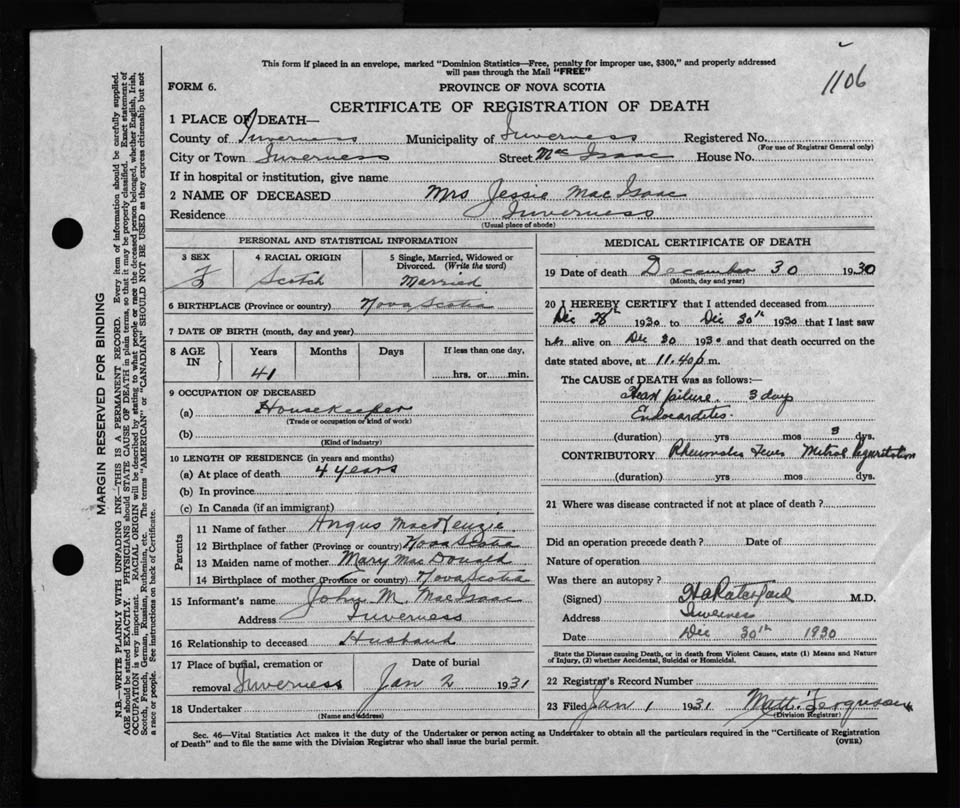 This form if placed in an envelope, marked "Dominion Statistics—Free, penalty for improper use, $300," and properly addressed
will pass through the Mail "FREE"
1106
FORM 6.
PROVINCE OF NOVA SCOTIA
CERTIFICATE OF REGISTRATION OF DEATH
1 PLACE OF DEATH—
County of Inverness Municipality of Inverness Registered No.
(For use of Registrar General only)
City or Town Inverness Street Mac Isaac House No.
If in hospital or institution, give name
2 NAME OF DECEASED Mrs Jessie Mac Isaac
Residence Inverness
(Usual place of abode)
PERSONAL AND STATISTICAL INFORMATION
3 SEX F
4 RACIAL ORIGIN Scotch
5 Single, Married, Widowed or Divorced. (Write the word) Married.
6 BIRTHPLACE (Province or country) Nova Scotia
7 DATE OF BIRTH (month, day and year)
8 AGE IN Years Months Days If less than one day,
41 hrs. or min.
9 OCCUPATION OF DECEASED
(a) Housekeeper
(Trade or occupation or kind of work)
(b)
(Kind of industry)
10 LENGTH OF RESIDENCE (in years and months)
(a) At place of death 4 years
(b) In province
(c) In Canada (if an immigrant)
Parents
11 Name of father Angus MacKenzie
12 Birthplace of father (Province or country) Nova Scotia
13 Maiden name of mother Mary Mac Donald
14 Birthplace of mother (Province or country) Nova Scotia
15 Informant's name John M. MacIsaac
Address Inverness
16 Relationship to deceased Husband
17 Place of burial, cremation or Date of burial
removal Inverness Jan 2 1931
18 Undertaker
(Name and address)
MEDICAL CERTIFICATE OF DEATH
19 Date of death December 30 1930
(Month, day and year)
20 I HEREBY CERTIFY that I attended deceased from
Dec 28th 1930 to Dec 30th 1930 that I last saw
her alive on Dec 30 1930 and that death occurred on the
date stated above, at 11.40 p.m.
The CAUSE of DEATH was as follows:—
Heart failure 3 days
Endocarditis.
(duration) yrs mos 3 dys.
CONTRIBUTORY Rheumatic Fever Mitral Reguritation
(duration) yrs mos dys.
21 Where was disease contracted if not at place of death?
Did an operation precede death? Date of
Nature of operation
Was there an autopsy?
(Signed) M.D.
Address Inverness
Date Dec 30th 1930
State the Disease causing Death, or in death from Violent Causes, state (1) Means and Nature
of Injury, (2) whether Accidental, Suicidal or Homicidal.
22 Registrar's Record Number
23 Filed Jan 1 1931 Matt. Ferguson
(Division Registrar)
Sec. 46—Vital Statistics Act makes it the duty of the Undertaker or person acting as Undertaker to obtain all the particulars required in the "Certificate of Registration
of Death" and to file the same with the Division Registrar who shall issue the burial permit.
(OVER)
MARGIN RESERVED FOR BINDING
N.B.—WRITE PLAINLY WITH UNFADING INK—THIS IS A PERMANENT RECORD. Every item of information should be carefully supplied.
AGE should be stated EXACTLY. PHYSICIANS should STATE CAUSE OF DEATH in plain terms, so that it may be properly classified. Exact statement of
OCCUPATION is very important. RACIAL ORIGIN will be described by stating to what people or race the deceased person belonged, whether English, Irish,
Scotch, French, German, Russian, Ruthenian, etc. The terms "AMERICAN" or "CANADIAN" SHOULD NOT BE USED as they express citizenship but not
a race or people. See instructions on back of Certificate.